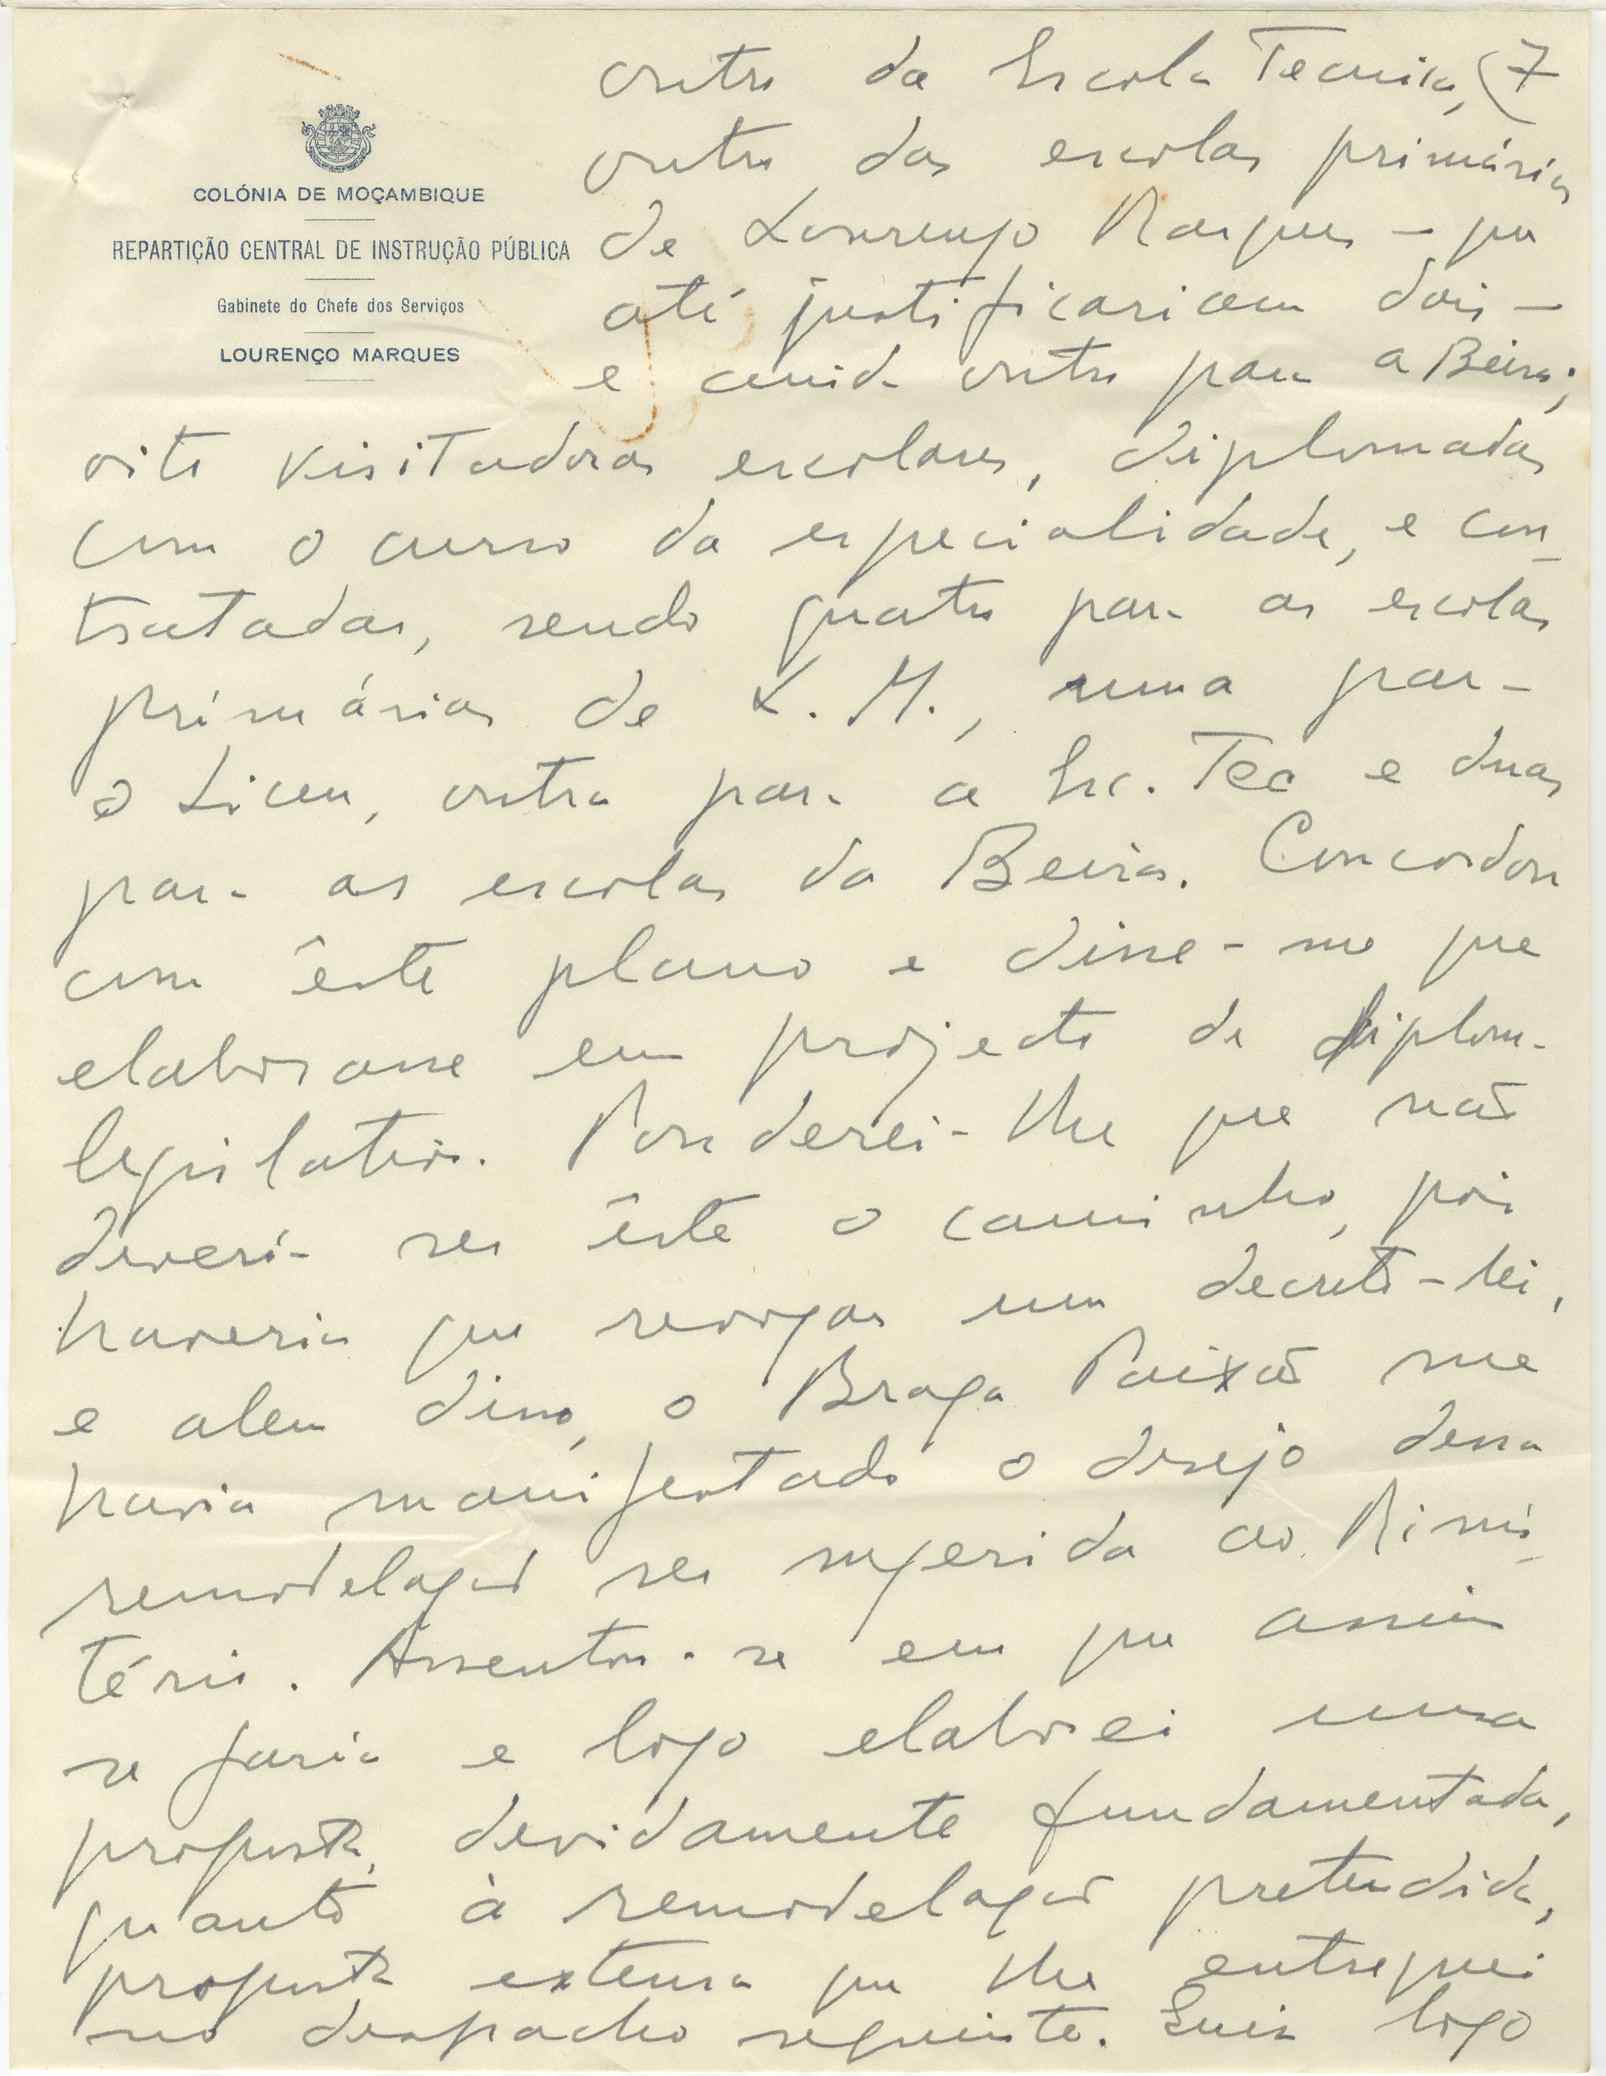 COLÓNIA DE MOÇAMBIQUE
REPARTIÇÃO CENTRAL DE INSTRUÇÃO PÚBLICA
Gabinete do Chefe dos Serviços
LOURENÇO MARQUES
outro da Escola Tecnica, (7
outro das escolas primárias
de Lourenço Marques – que
até justificariam dois –
e ainda outro para a Beira;
oito visitadoras escolares, diplomadas
com o curso da especialidade, e con-
tratadas, sendo quatro para as escolas
primárias de L. M., uma para
o Liceu, outra para a Esc. Tec e duas
para as escolas da Beira. Concordou
com êste plano e disse-me que
elaborasse em projecto de diploma
legislativo. Ponderei-lhe que não
deveria ser êste o caminho, pois
haveria que revogar um decreto-lei,
e alem disso, o Braga Paixão me
havia manifestado o desejo dessa
remodelação ser sugerida ao Minis-
tério. Assentou-se em que assim
se faria e logo elaborei uma
proposta, devidamente fundamentada,
quanto à remodelação pretendida,
proposta extensa que lhe entreguei
no despacho seguinte. Quis logo